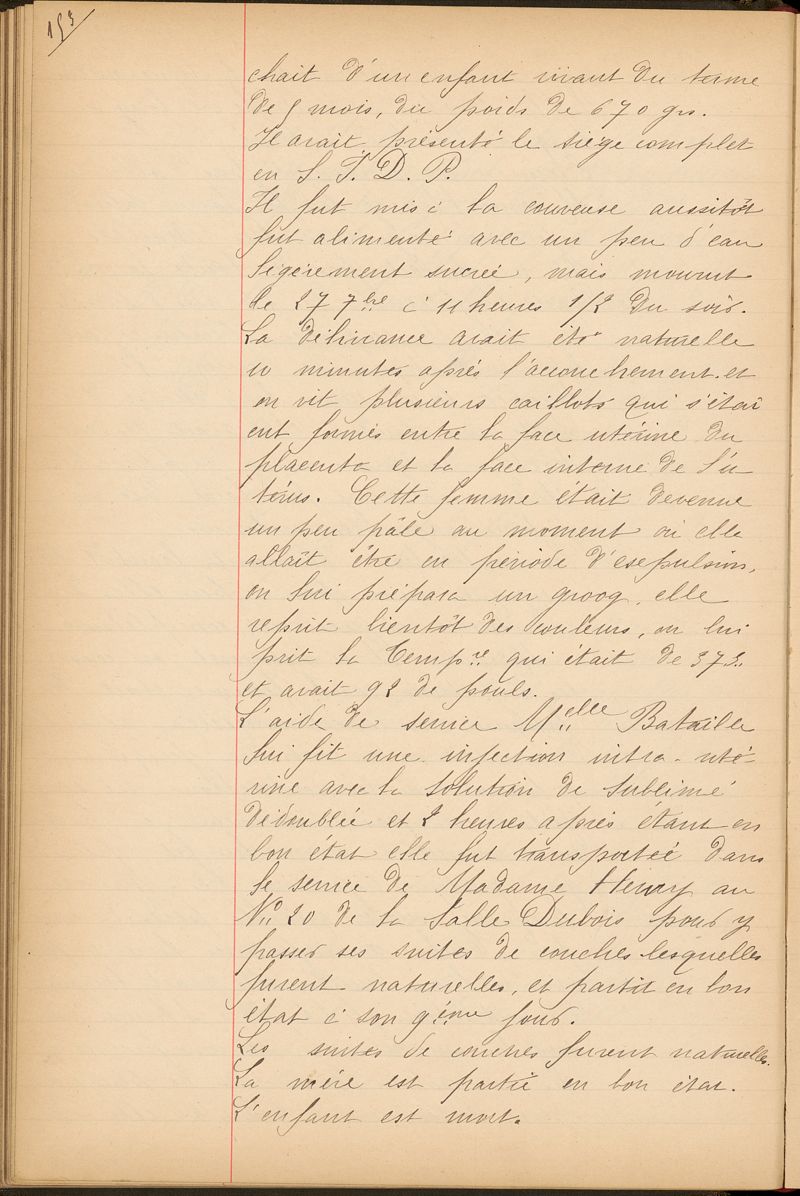 153
chait d'un enfant vivant du terme
de 5 mois, du poids de 670 grs.
Il avait présenté le siége complet
en S. I. D. P.
Il fut mis à la couveuse aussitôt
fut alimenté avec un peu d'eau
légèrement sucrée, mais mourut
le 27 7bre à 11 heures 1/2 du soir.
La délivrance avait été naturelle
10 minutes après l'accouchement. et
on vit plusieurs caillots qui s'étai
ent formés entre la face utérine du
placenta et la face interne de l'u
térus. Cette femme était devenue
un peu pâle au moment où elle
allait être en période d'esepulsion,
on lui prépara un groog, elle
reprit bientôt des couleurs, on lui
prit la Tempre qui était de
et avait 92 de pouls.
L'aide de service Melle Bataille
lui fit une injection intra-uté
rine avec la solution de sublimé
dédoublée et 2 heures après étant en
bon état elle fut transportée dans
le service de Madame Henry au
No 20 de la Salle Dubois pour y
passer ses suites de couches lesquelles
furent naturelles, et partit en bon
état à son 9ème jour.
Les suites de couches furent naturelles.
La mère est partie en bon état.
L'enfant est mort.